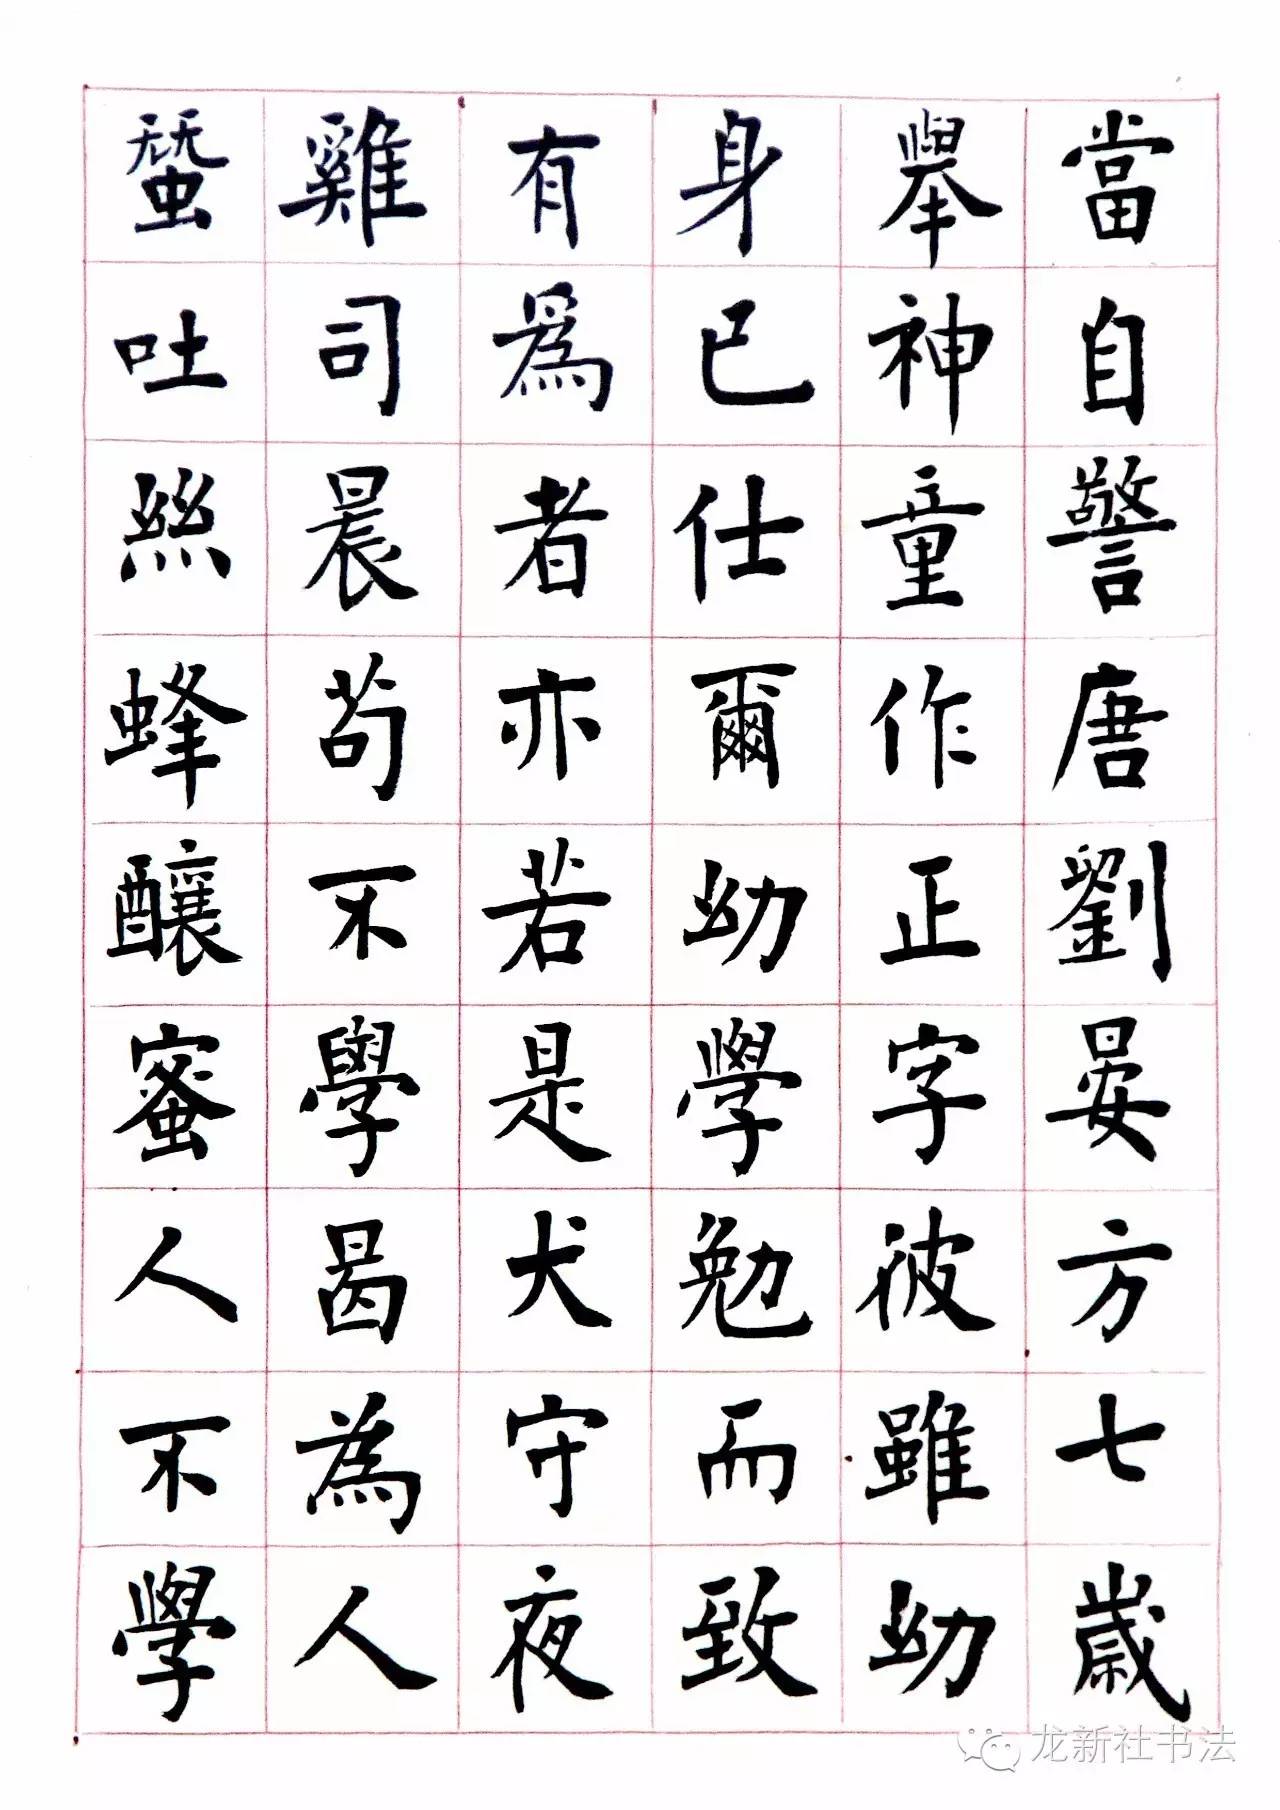 當自警唐劉晏方七歲
舉神童作正字彼雖幼
身已仕爾幼學勉而致
有為者亦若是犬守夜
雞司晨苟不學曷為人
蠶吐絲蜂釀蜜人不學
龙新社书法